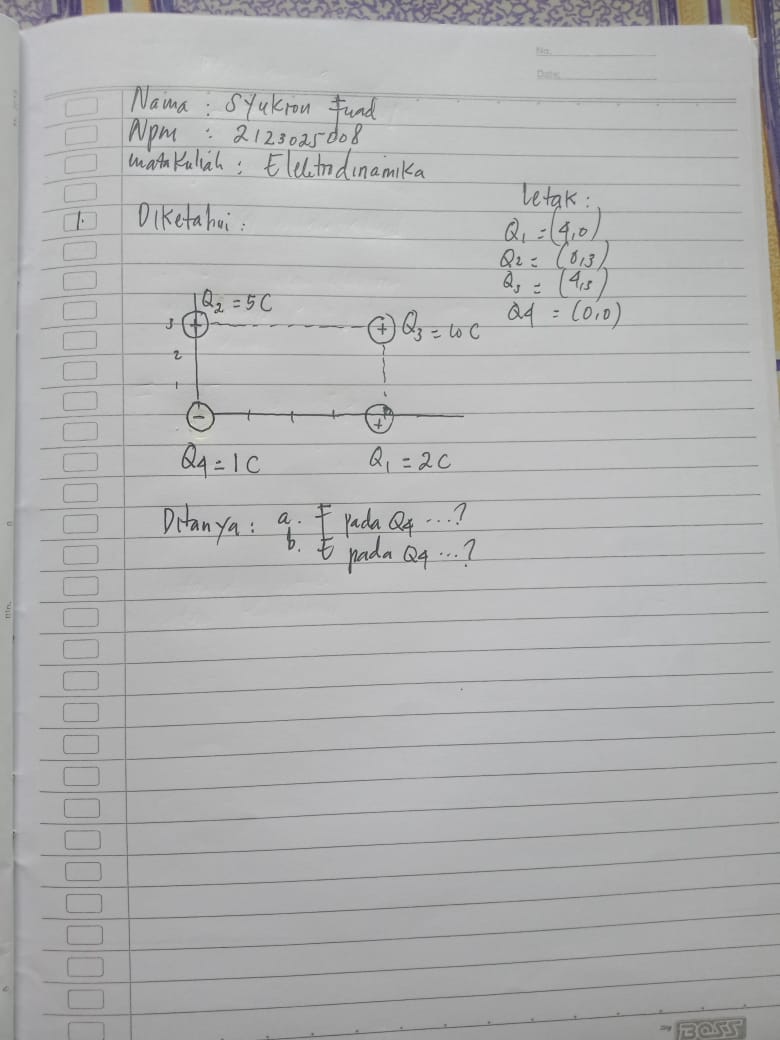 No.
Date.
Nama : Syukron Fuad
Npm : 2123025008
matakuliah : Elektrodinamika
1. Diketahui :
Letak :
Q1 = (4,0)
Q2 = (0,3)
Q3 = (4,3)
Q4 = (0,0)
Q2 = 5 C
3 + + Q3 = 10 C
2
1
- +
Q4 = 1 C Q1 = 2 C
Ditanya : a. F pada Q4 ...?
b. E pada Q4 ...?
BOSS